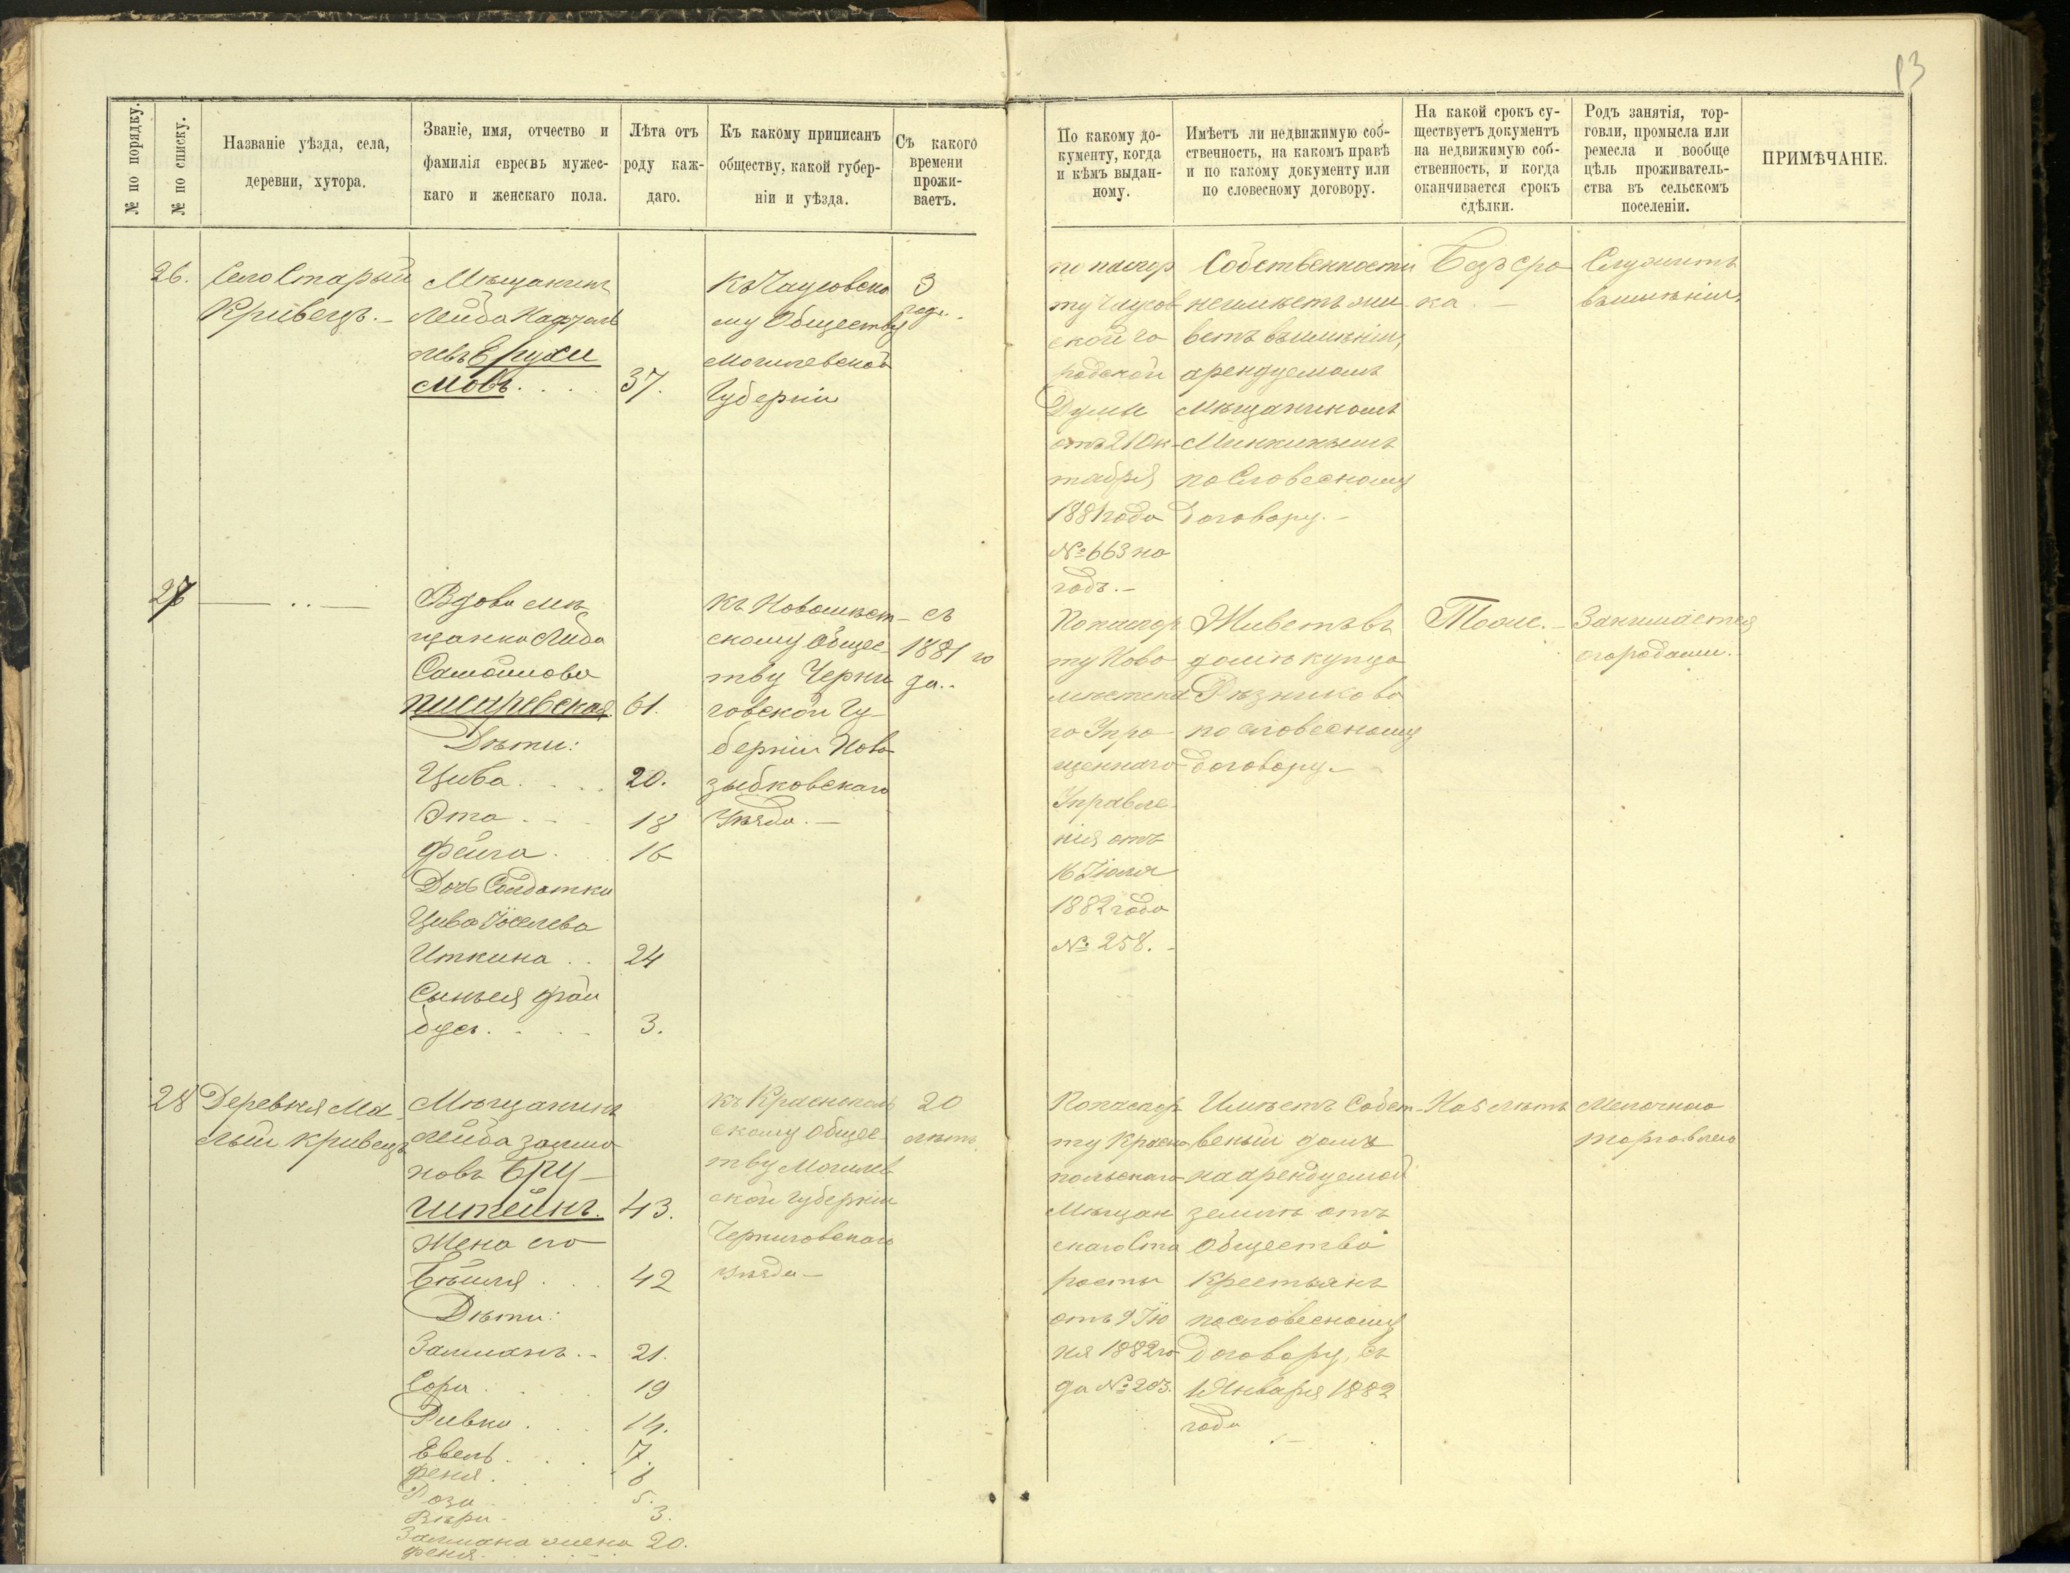 13
№ по порядку.
№ по списку.
Названіе уѣзда, села,
деревни, хутора.
Званіе, имя, отчество и
фамилія евреевъ мужес-
каго и женскаго пола.
Лѣта отъ
роду каж-
даго.
Къ какому приписанъ
обществу, какой губер-
ніи и уѣзда.
Съ какого
времени
прожи-
ваетъ.
По какому до-
кументу, когда
и кѣмъ выдан-
ному.
Имѣетъ ли недвижимую соб-
ственность, на какомъ правѣ
и по какому документу или
по словесному договору.
На какой срокъ су-
ществуетъ документъ
на недвижимую соб-
ственность, и когда
оканчивается срокъ
сдѣлки.
Родъ занятія, тор-
говли, промысла или
ремесла и вообще
цѣль проживатель-
ства въ сельскомъ
поселеніи.
ПРИМѢЧАНІЕ.
26.
Село Старый
Кривецъ. –
Мѣщанинъ
Лейба
Ерухи
мовъ. . . .
37.
Къ Чаусовско
му Обществу
Могилевской
Губерніи
3
года.
по паспор
ту Чаусов
ской го
родской
Думы
отъ 21 Ок-
тября
1881 года
№ 663 на
годъ. –
Собственности
неимѣетъ жи
ветъ въимѣніи,
арендуемомъ
Мѣщаниномъ
Минкинымъ
по Словесному
договору. –
Безъ сро
ка. –
Служитъ
въимѣніи.
27
— .. —
Вдова мѣ
щанка Либа
Самойлова
Писаревская.
61.
Дѣти:
Цива. . . .
20.
Эта . . .
18
Фейга. .
16
Дочь Солдатка
Цива Іоселева
Иткина . .
24
Сынъ ея Фай
бусъ. . . .
3.
Къ Новомѣст-
скому Общес-
тву Черни
говской Гу-
берніи Ново
зыбковскаго
Уѣзда. –
съ
1881 го
да..
По паспор
ту Ново
мѣстска
го Упро
щеннаго
Управле-
нія отъ
16 Іюля
1882 года
№ 258. –
Живетъ въ
домѣ купца
Рѣзникова
по словесному
договору –
Тоже. –
Занимается
огородами.
28
Деревня Ма
лый Кривецъ
Мѣщанинъ
Лейба Залма
новъ Бру-
штейнъ.
43.
Жена его
Бейля . . .
42
Дѣти:
Залманъ. .
21.
Сора . . .
19
Ривка . . .
14.
Евель. . . .
7.
Феня. . .
6
Роза . . .
5.
Вѣра. . .
3.
Залмана жена
20.
Феня. . .
къ Краснополь
скому Общес-
тву Могилев
ской Губерніи
Черниковскаго
уѣзда –
20
лѣтъ
По паспор
ту Красно
польскаго
Мѣщан
скаго Ста
росты
отъ 9 Ію
ня 1882 го
да № 203.
Имѣетъ Собст-
венный домъ
на арендуемой
землѣ отъ
Общества
Крестьянъ
по словесному
договору, съ
1 Января 1882
года
На 5 лѣтъ
Мелочною
торговлею